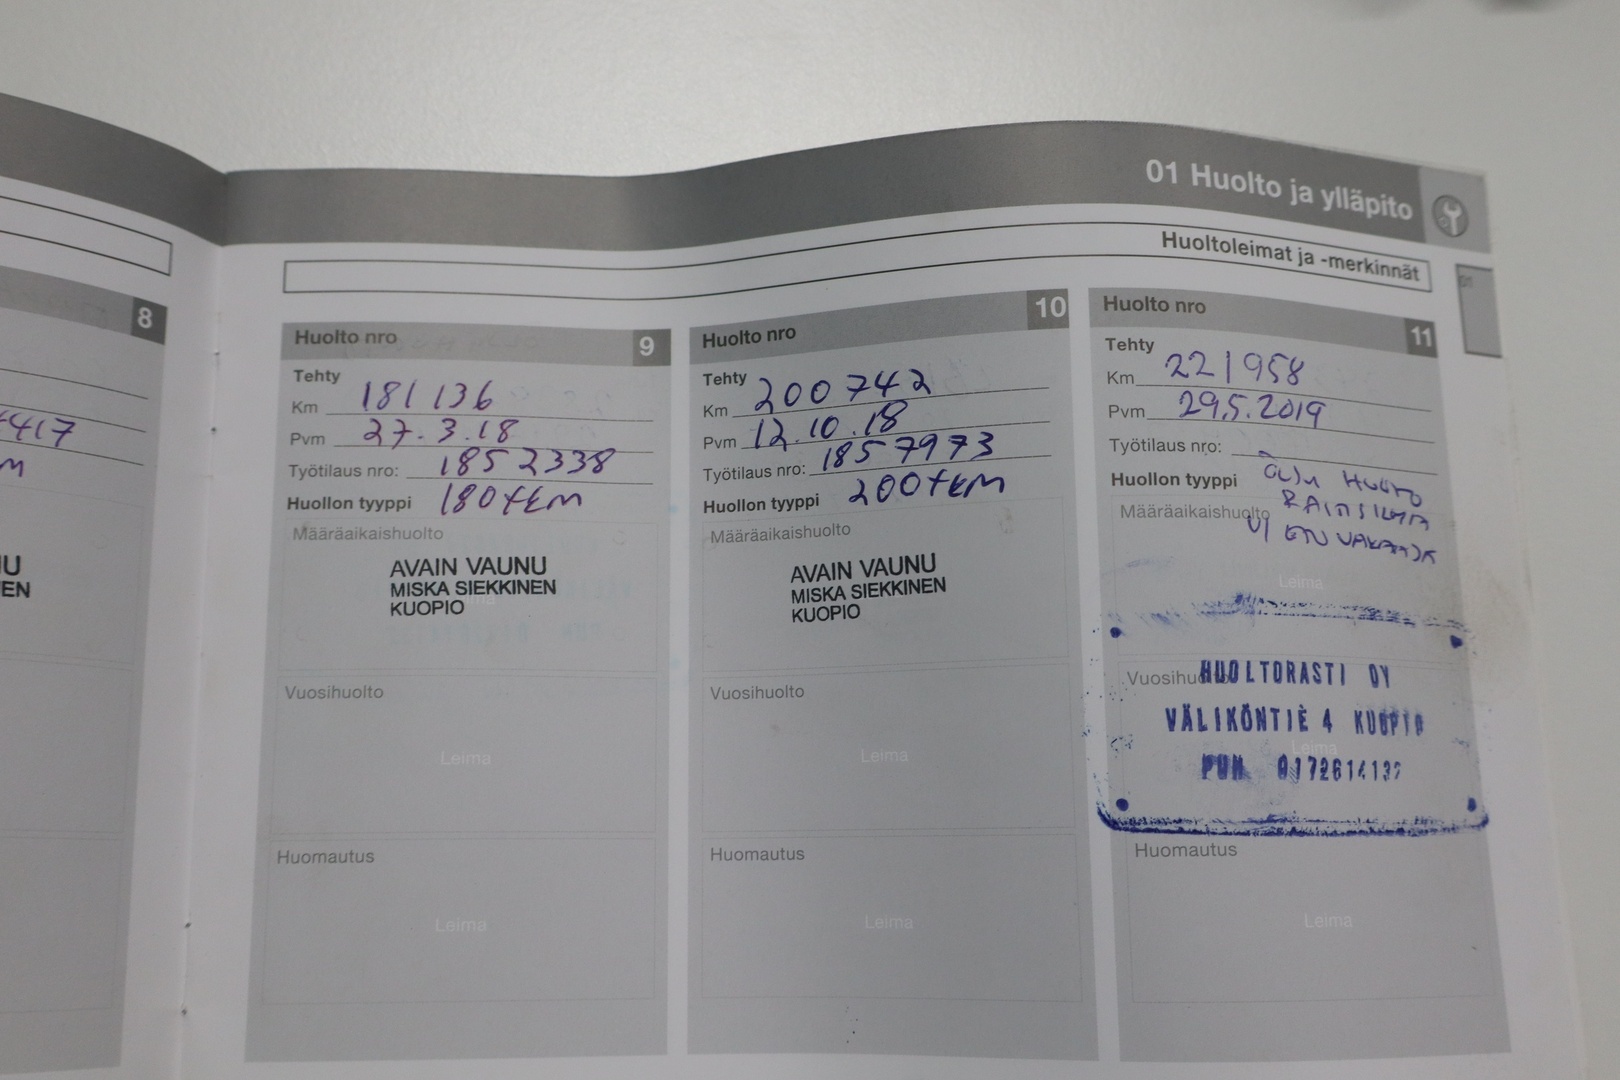 01 Huolto ja ylläpito
Huoltoleimat ja -merkinnät
01
8
417
M
U
EN
Huolto nro 9
Tehty
Km 181 136
Pvm 27.3.18
Työtilaus nro: 1852338
Huollon tyyppi 180 tkm
Määräaikaishuolto
AVAIN VAUNU
MISKA SIEKKINEN
KUOPIO
Vuosihuolto
Leima
Huomautus
Leima
Huolto nro 10
Tehty
Km 200 742
Pvm 12.10.18
Työtilaus nro: 1857973
Huollon tyyppi 200 tkm
Määräaikaishuolto
AVAIN VAUNU
MISKA SIEKKINEN
KUOPIO
Vuosihuolto
Leima
Huomautus
Leima
Huolto nro 11
Tehty
Km 221958
Pvm 29.5.2019
Työtilaus nro:
Huollon tyyppi ÖLJY HUOLTO
Määräaikaishuolto
Leima
Vuosihuolto
HUOLTORASTI OY
VÄLIKÖNTIE 4 KUOPIO
Leima
PUH
Huomautus
Leima